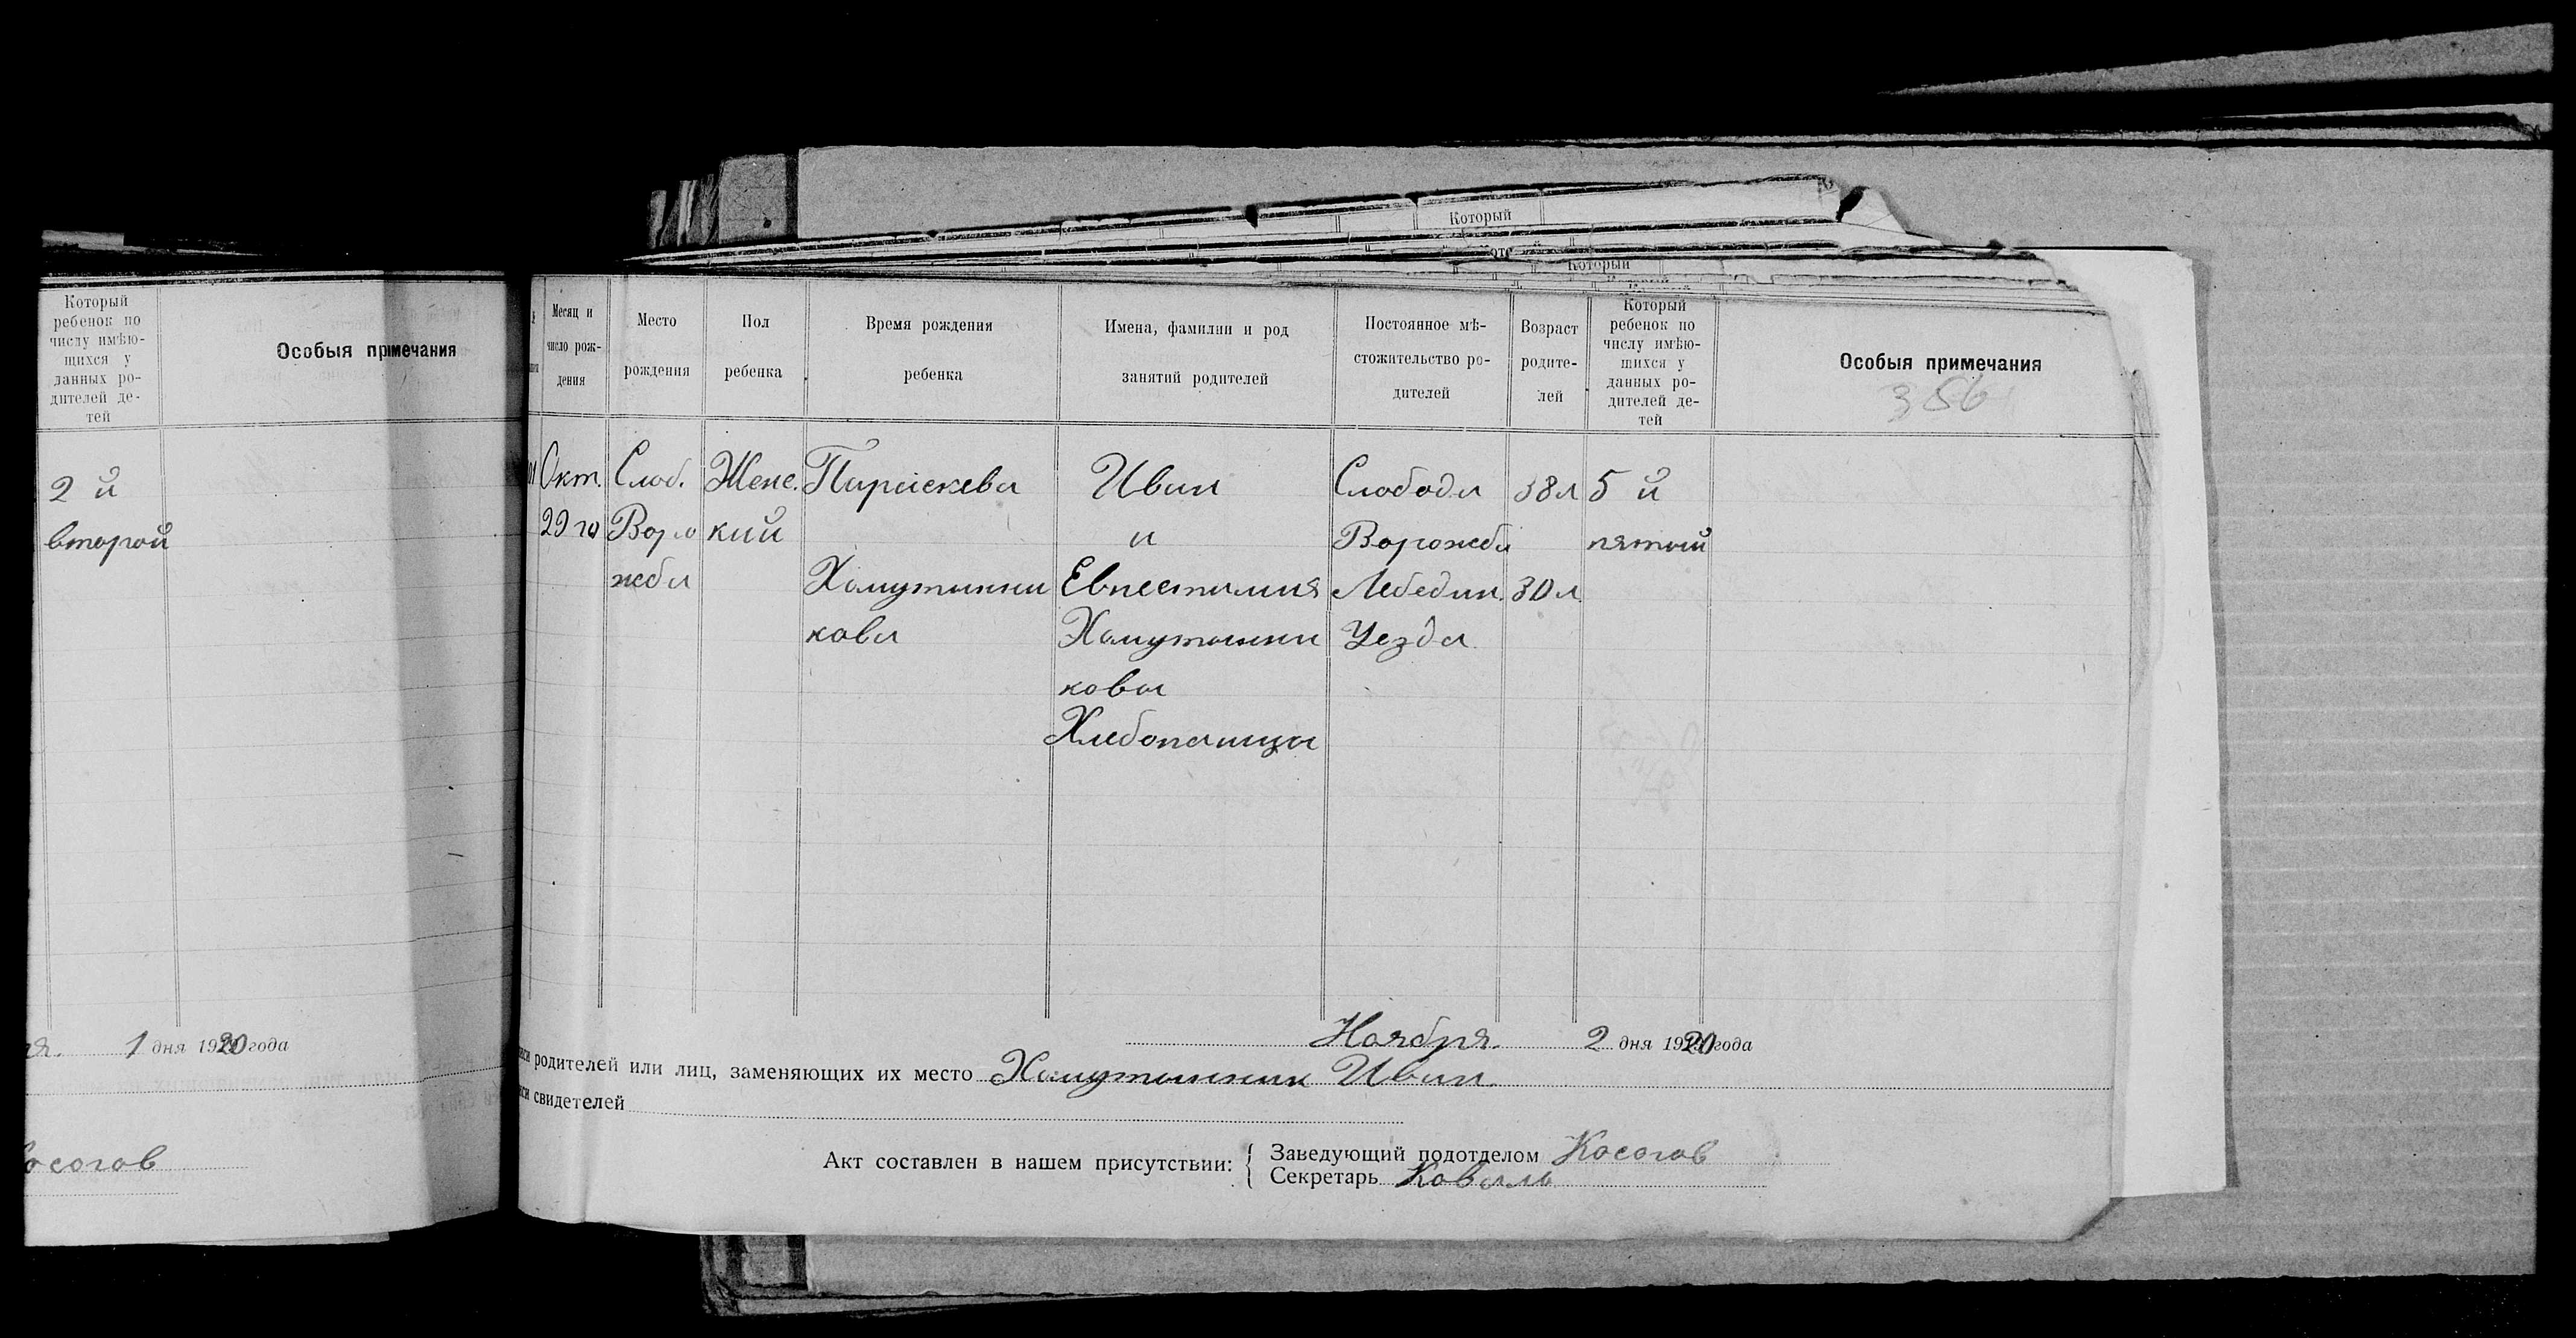 Который
Который
Который
ребенок по
числу имѣю-
щихся у
данных ро-
дителей де-
тей
Особыя примечания
2 й
второй
1 дня 1920 года
осогов
Месяц и
число рож-
дения
Место
рождения
Пол
ребенка
Время рождения
ребенка
Имена, фамилии и род
занятий родителей
Постоянное мѣ-
стожительство ро-
дителей
Возраст
родите-
лей
Который
ребенок по
числу имѣю-
щихся у
данных ро-
дителей де-
тей
Особыя примечания
356
Окт.
29 го
Слоб.
Воро
жба
Женс.
кий
Параскева
Хомутинни
кова
Иван
и
Евпестимия
Хомутинни
ковы
Хлебопашцы
Слобода
Ворожба
Лебедин.
Уезда
38 л
30 л
5 й
пятый
Ноября 2 дня 1920 года
родителей или лиц, заменяющих их место Хомутинник Иван
свидетелей
Акт составлен в нашем присутствии:
Заведующий подотделом Косогов
Секретарь Коваль